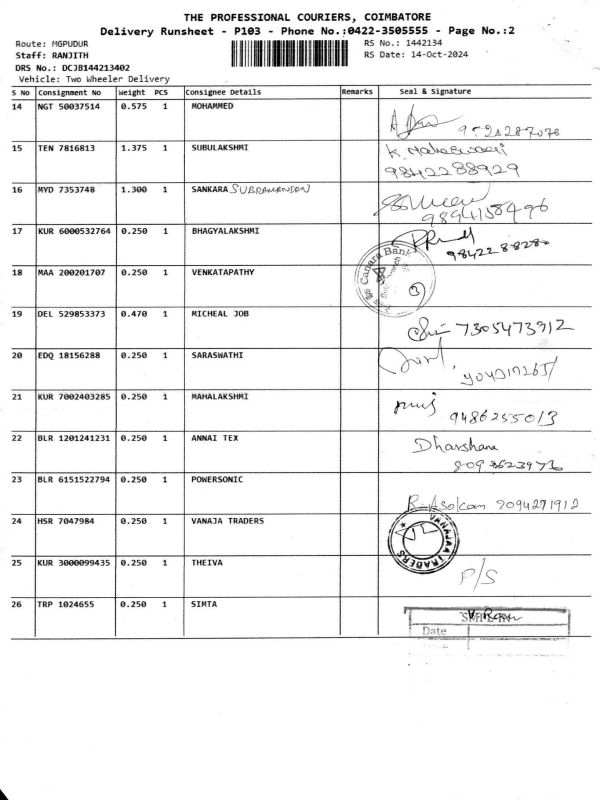 THE PROFESSIONAL COURIERS, COIMBATORE
Delivery Runsheet - P103 - Phone No.:0422-3505555 - Page No.:2
Route: MGPUDUR
RS No.: 1442134
Staff: RANJITH
RS Date: 14-Oct-2024
DRS No.: DCJB144213402
Vehicle: Two Wheeler Delivery
S No Consignment No Weight PCS Consignee Details Remarks Seal & Signature
14 NGT 50037514 0.575 1 MOHAMMED
15 TEN 7816813 1.375 1 SUBULAKSHMI
K. Maheswari
9842288929
16 MYD 7353748 1.300 1 SANKARA SUBRAMANIAN
9894158496
17 KUR 6000532764 0.250 1 BHAGYALAKSHMI
Canara Bank
18 MAA 200201707 0.250 1 VENKATAPATHY
19 DEL 529853373 0.470 1 MICHEAL JOB
7305473912
20 EDQ 18156288 0.250 1 SARASWATHI
21 KUR 7002403285 0.250 1 MAHALAKSHMI
9486255013
22 BLR 1201241231 0.250 1 ANNAI TEX
Dharshana
23 BLR 6151522794 0.250 1 POWERSONIC
R. Asokan 9094271912
24 HSR 7047984 0.250 1 VANAJA TRADERS
VANAJAA TRADERS
25 KUR 3000099435 0.250 1 THEIVA
P/S
26 TRP 1024655 0.250 1 SIMTA
Date